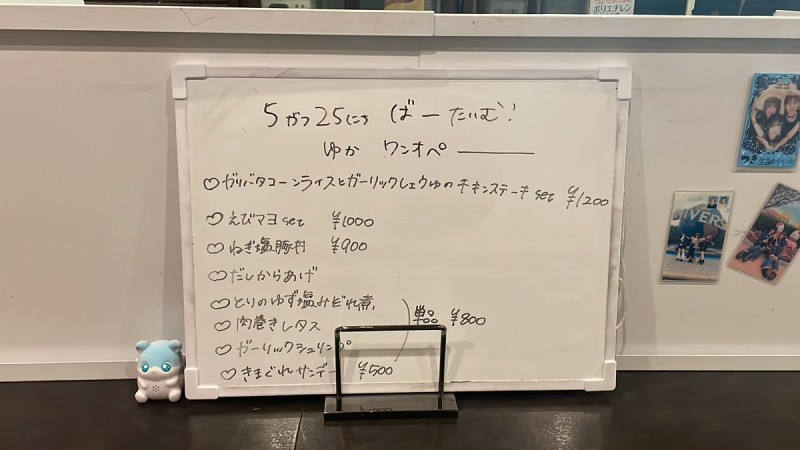 ポリエチレン
5がつ25にち ばーたいむ!
ゆか ワンオペ
♡ガリバタコーンライスとガーリックしょうゆのチキンステーキset ¥1200
♡えびマヨset ¥1000
♡ねぎ塩豚丼 ¥900
♡だしからあげ
♡とりのゆず塩みぞれ煮
♡肉巻きレタス 単品 ¥800
♡ガーリックシュリンプ
♡きまぐれサンデー ¥500